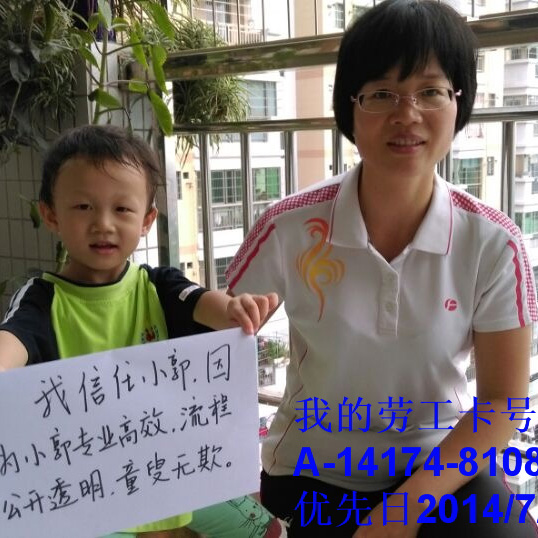 我信任小郭,因
为小郭专业高效,流程
公开透明,童叟无欺。
我的劳工卡号
A-14174-8108
优先日2014/7/